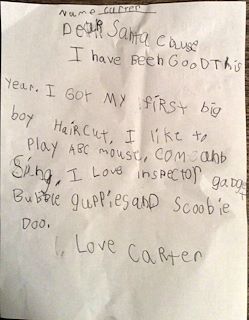 Name Carter
Dear Santa Clause
I have BEEN GooD This
year. I GoT MY first big
boy HairCut, I like to
PLAY ABC mouse, COM and
Sing, I Love Inspector gadget
Bubble guppies and Scoobie
Doo.
Love Carter